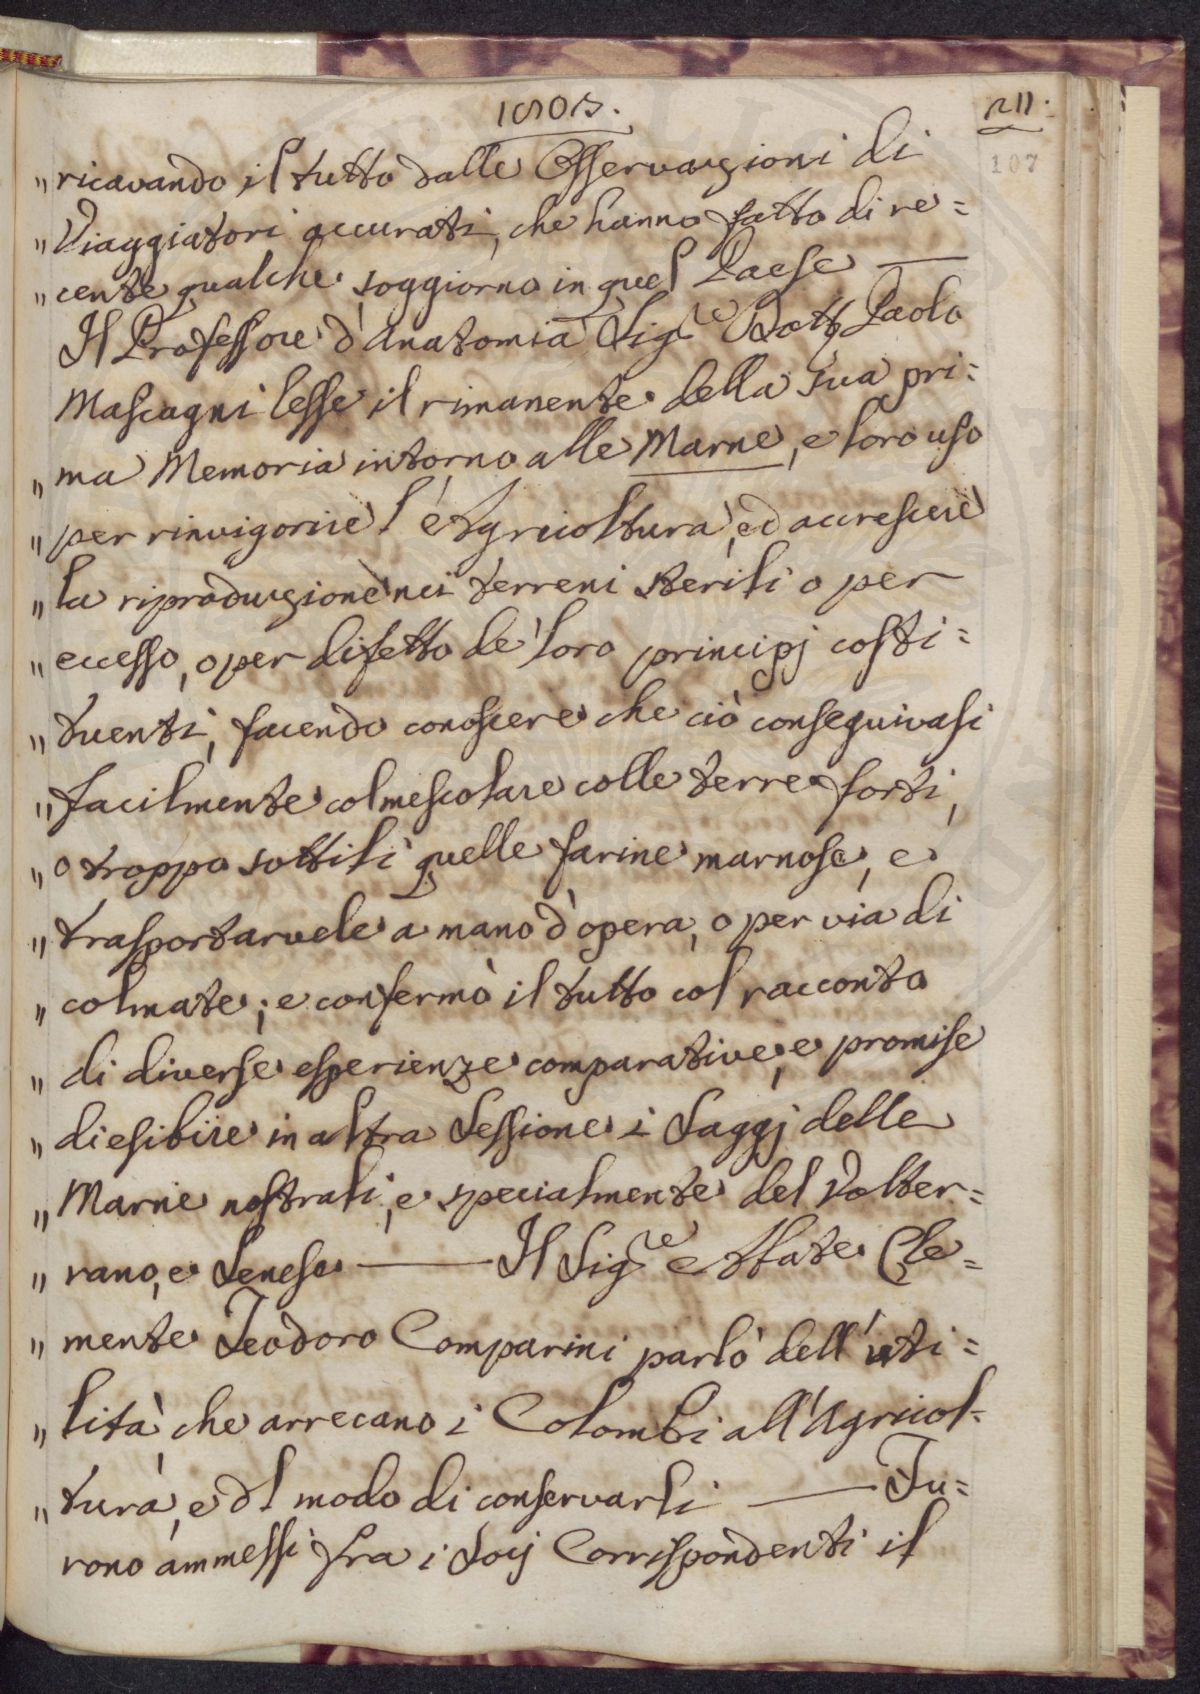 1803.
211.
107
„ ricavando il tutto dalle Osservazioni di
„ Viaggiatori accurati, che hanno fatto di re=
„ cente qualche soggiorno in quel Paese ——
Il Professore d'Anatomia Sig.re Dott. Paolo
Mascagni lesse il rimanente della sua pri=
„ ma Memoria intorno alle Marne, e loro uso
„ per rinvigorire l'Agricoltura, ed accrescere
„ la riproduzione nei terreni sterili o per
„ eccesso, o per difetto de' loro principj costi=
„ tuenti, facendo conoscere che ciò conseguivasi
„ facilmente col mescolare colle terre forti,
„ o troppo sottili quelle farine marnose, e
„ trasportarvele a mano d'opera, o per via di
„ colmate; e confermò il tutto col racconto
„ di diverse esperienze comparative, e promise
„ di esibire in altra Sessione i Saggj delle
„ Marne nostrali, e specialmente del Volter=
„ rano, e Senese —— Il Sig.re Abate Cle=
„ mente Teodoro Comparini parlò dell'uti=
„ lità che arrecano i Colombi all'Agricol=
„ tura, e del modo di conservarli —— Fu=
rono ammessi fra i Socj Corrispondenti il